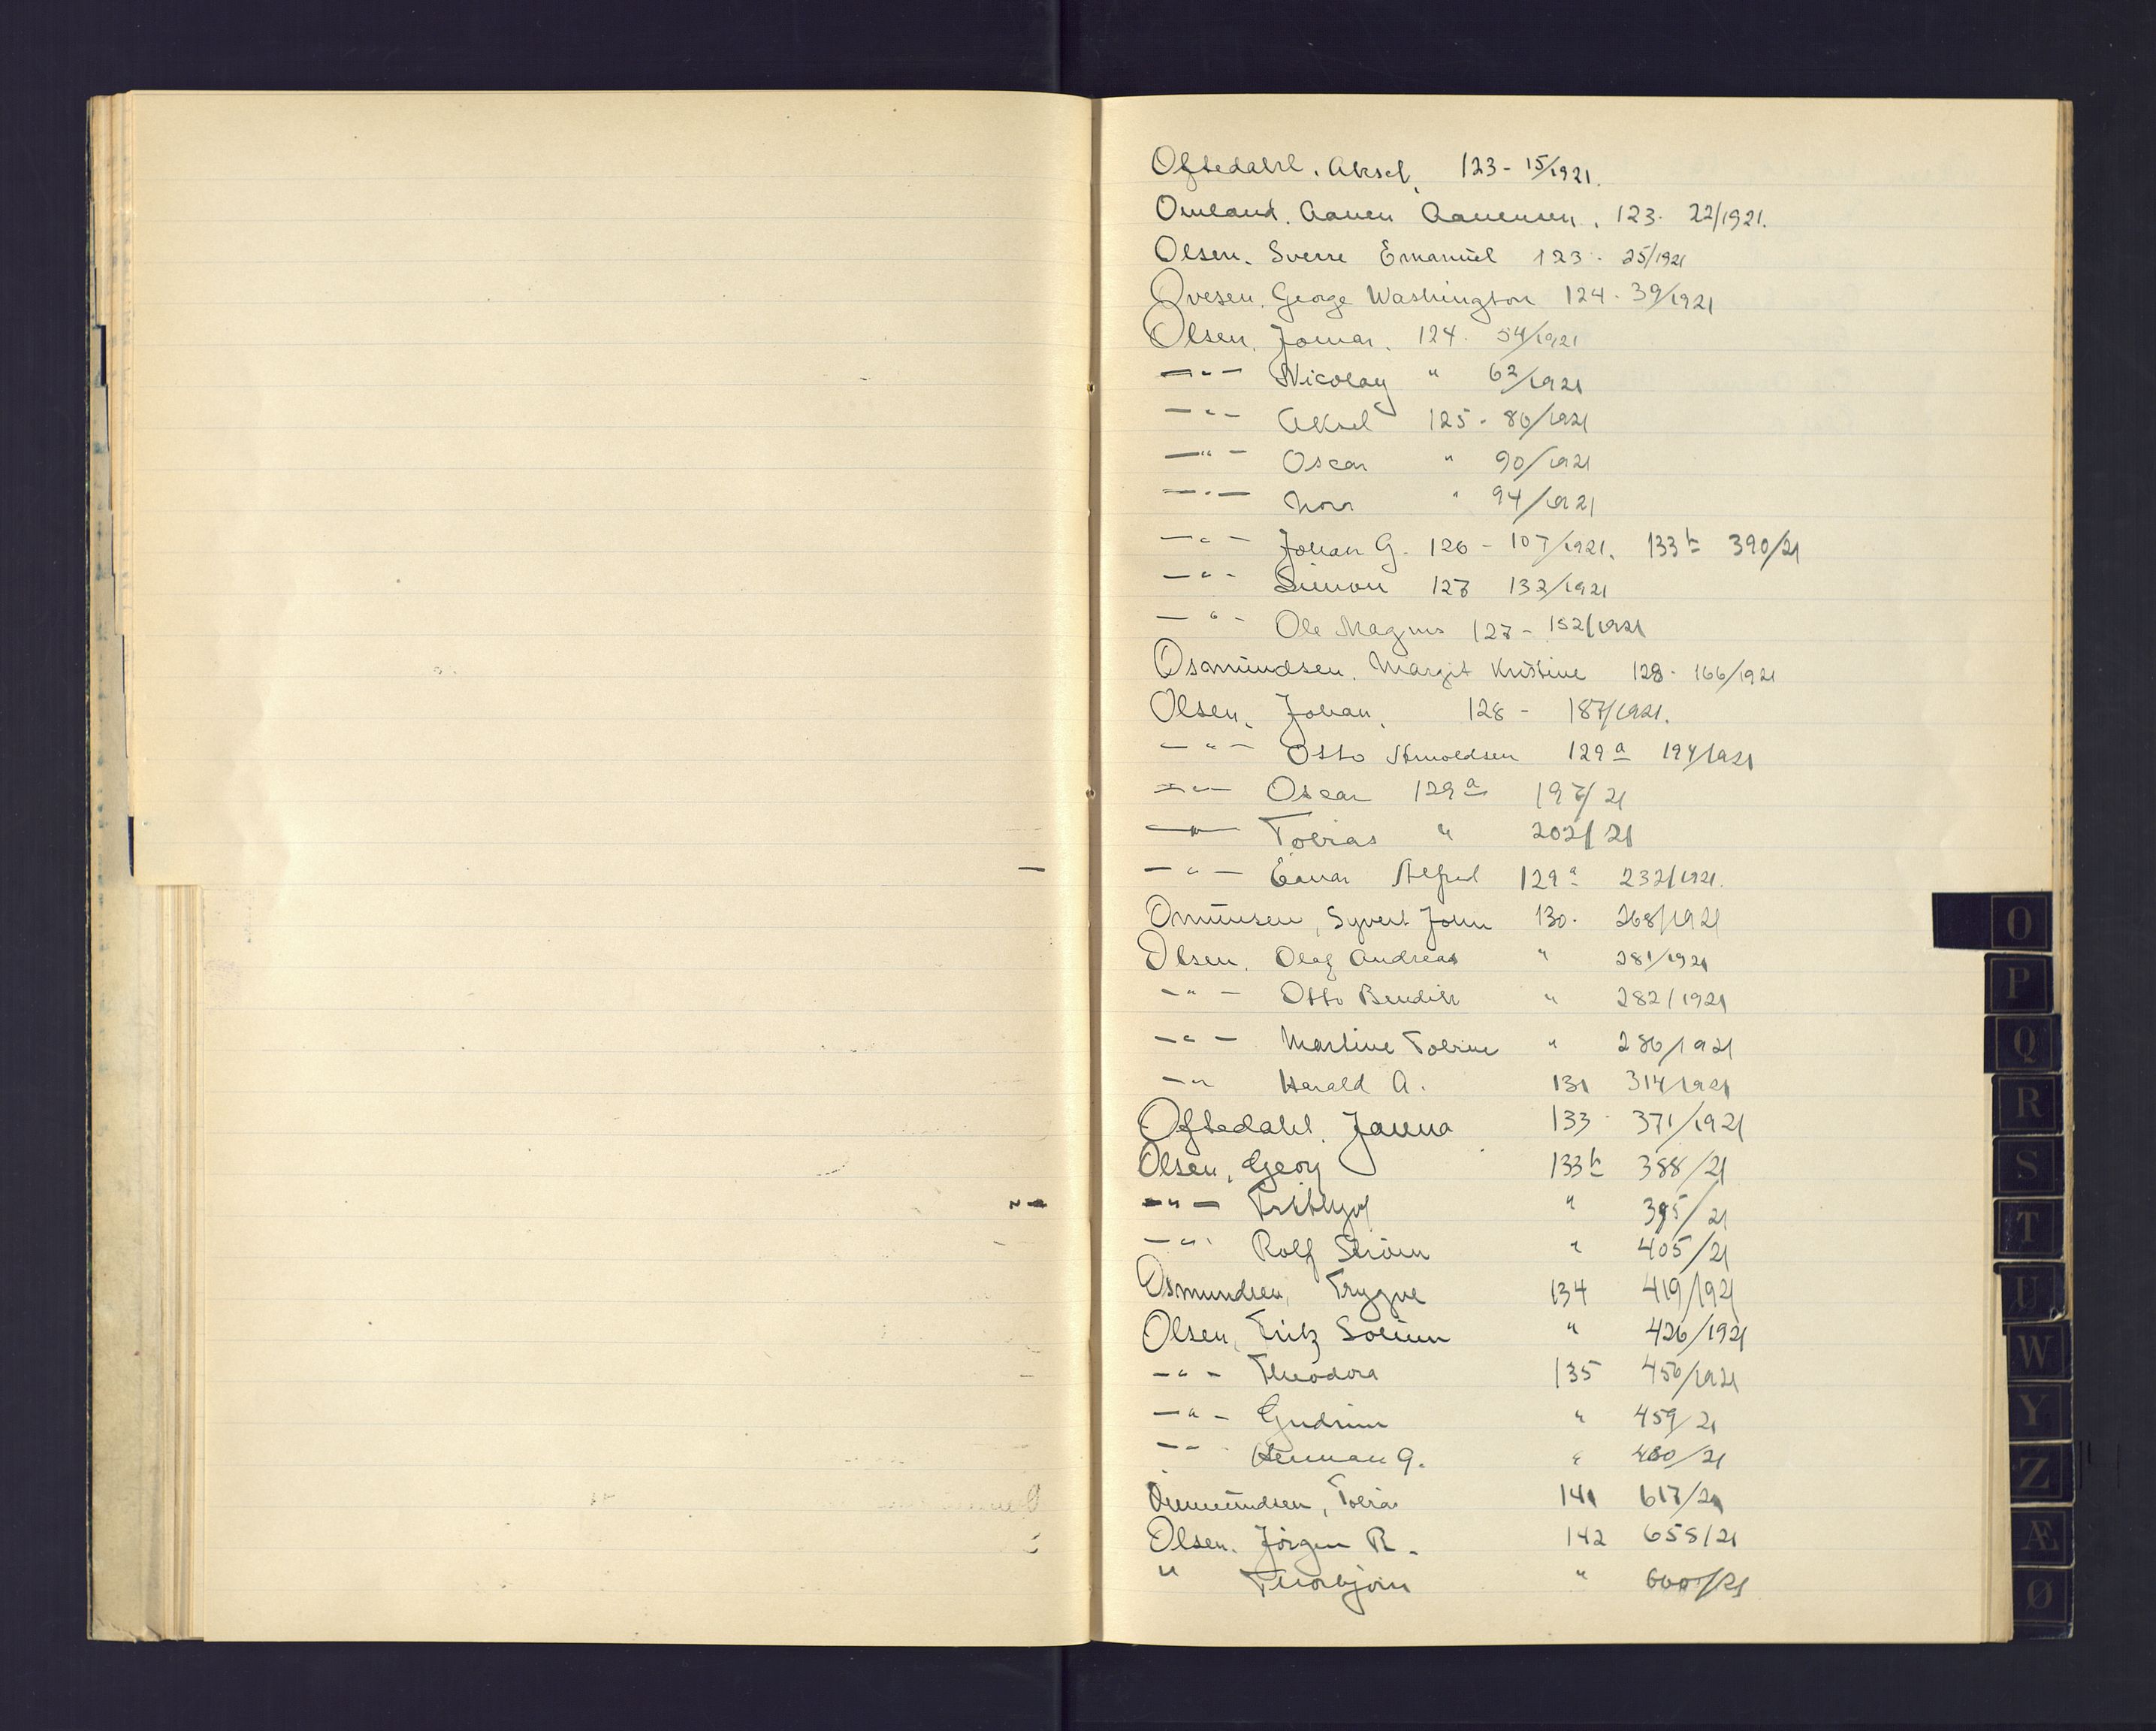 Oftedahl. Aksel. 123 - 15/1921.
Omland. Aanen Aanensen. 123. 22/1921.
Olsen. Sverre Emanuel 123. 25/1921
Ovesen. George Washington 124. 39/1921
Olsen. Jomar. 124. 54/1921
—"— Nicolay " 62/1921
—"— Aksel 125 - 86/1921
—"— Oscar " 90/1921
—"— " 94/1921
—"— Johan G. 126 - 107/1921. 133b 390/21
—"— Simon 127 132/1921
—"— Ole Magnus 127 - 152/1921
Osmundsen. Margit Kristine 128. 166/1921
Olsen. Johan. 128 - 187/1921.
—"— Otto Arnoldsen 129a 194/1921
—"— Oscar 129a 197/21
—"— Tobias " 202/21
—"— Einar Alfred 129a 232/1921.
Omunsen, Syvert John 130. 268/1921
Olsen. Olaf Andreas " 281/1921
—"— Otto Bendik " 282/1921
—"— Martine Tobine " 286/1921
—"— Harald A. 131 314/1921
Oftedahl. Janna 133. 371/1921
Olsen, Georg 133b 388/21
—"— Frithjof " 395/21
—"— Rolf Strøm " 405/21
Osmundsen, Trygve 134 419/1921
Olsen, Fritz " 426/1921
—"— Theodora 135 456/1921
—"— Gudrun " 459/21
—"— Herman G. " 480/21
Tobias 141 617/21
Olsen. Jörgen R. 142 658/21
" Thorbjörn " /21
O
P
Q
R
S
T
U
W
Y
Z
Æ
Ø